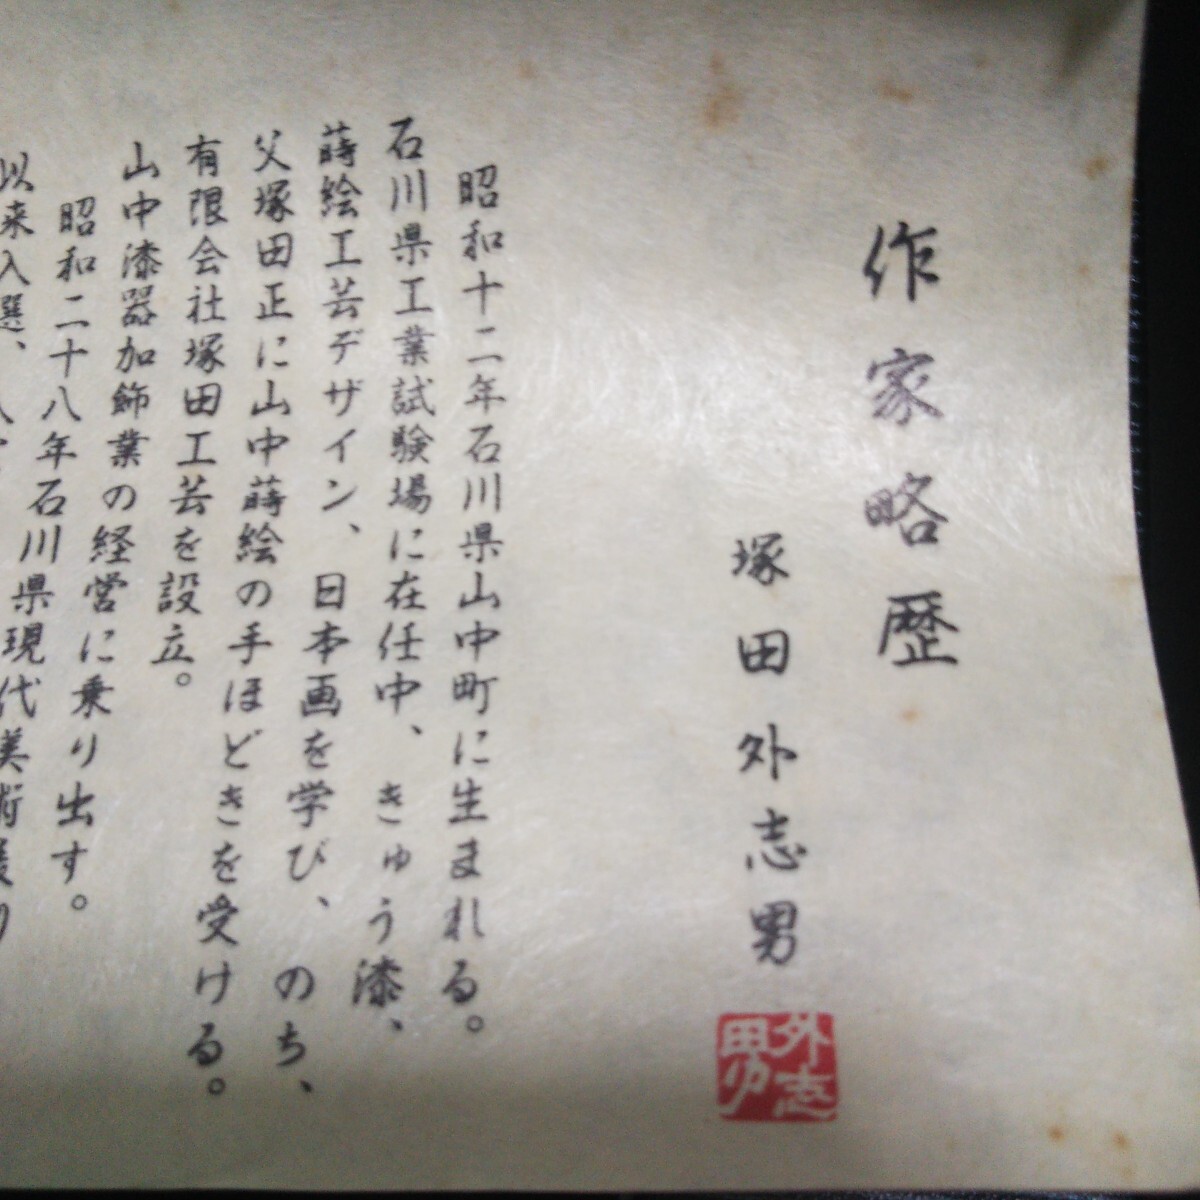 作家略歴
塚田外志男
外志男
昭和十二年石川県山中町に生まれる。
石川県工業試験場に在任中、きゅう漆、
蒔絵工芸デザイン、日本画を学び、のち、
父塚田正に山中蒔絵の手ほどきを受ける。
有限会社塚田工芸を設立。
山中漆器加飾業の経営に乗り出す。
昭和二十八年石川県現代美術展
以来入選、